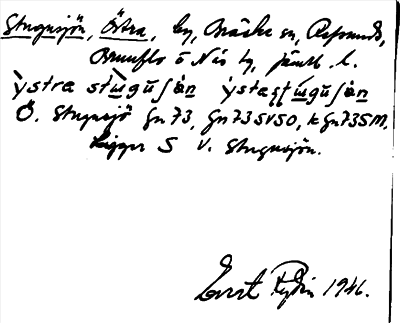 Stugusjön, Östra, by, Bräcke sn, Refsunds,
Brunflo o Näs tg, Jämtl. l.
ỳstra stu̲gu̇ʃȧn ýstaʂʈu̲gu̇ʃȧn
Ö. Stugusjö Gn 73, Gn 73SVSO, kGn73SM,
Ligger S V. Stugusjön.
1946.